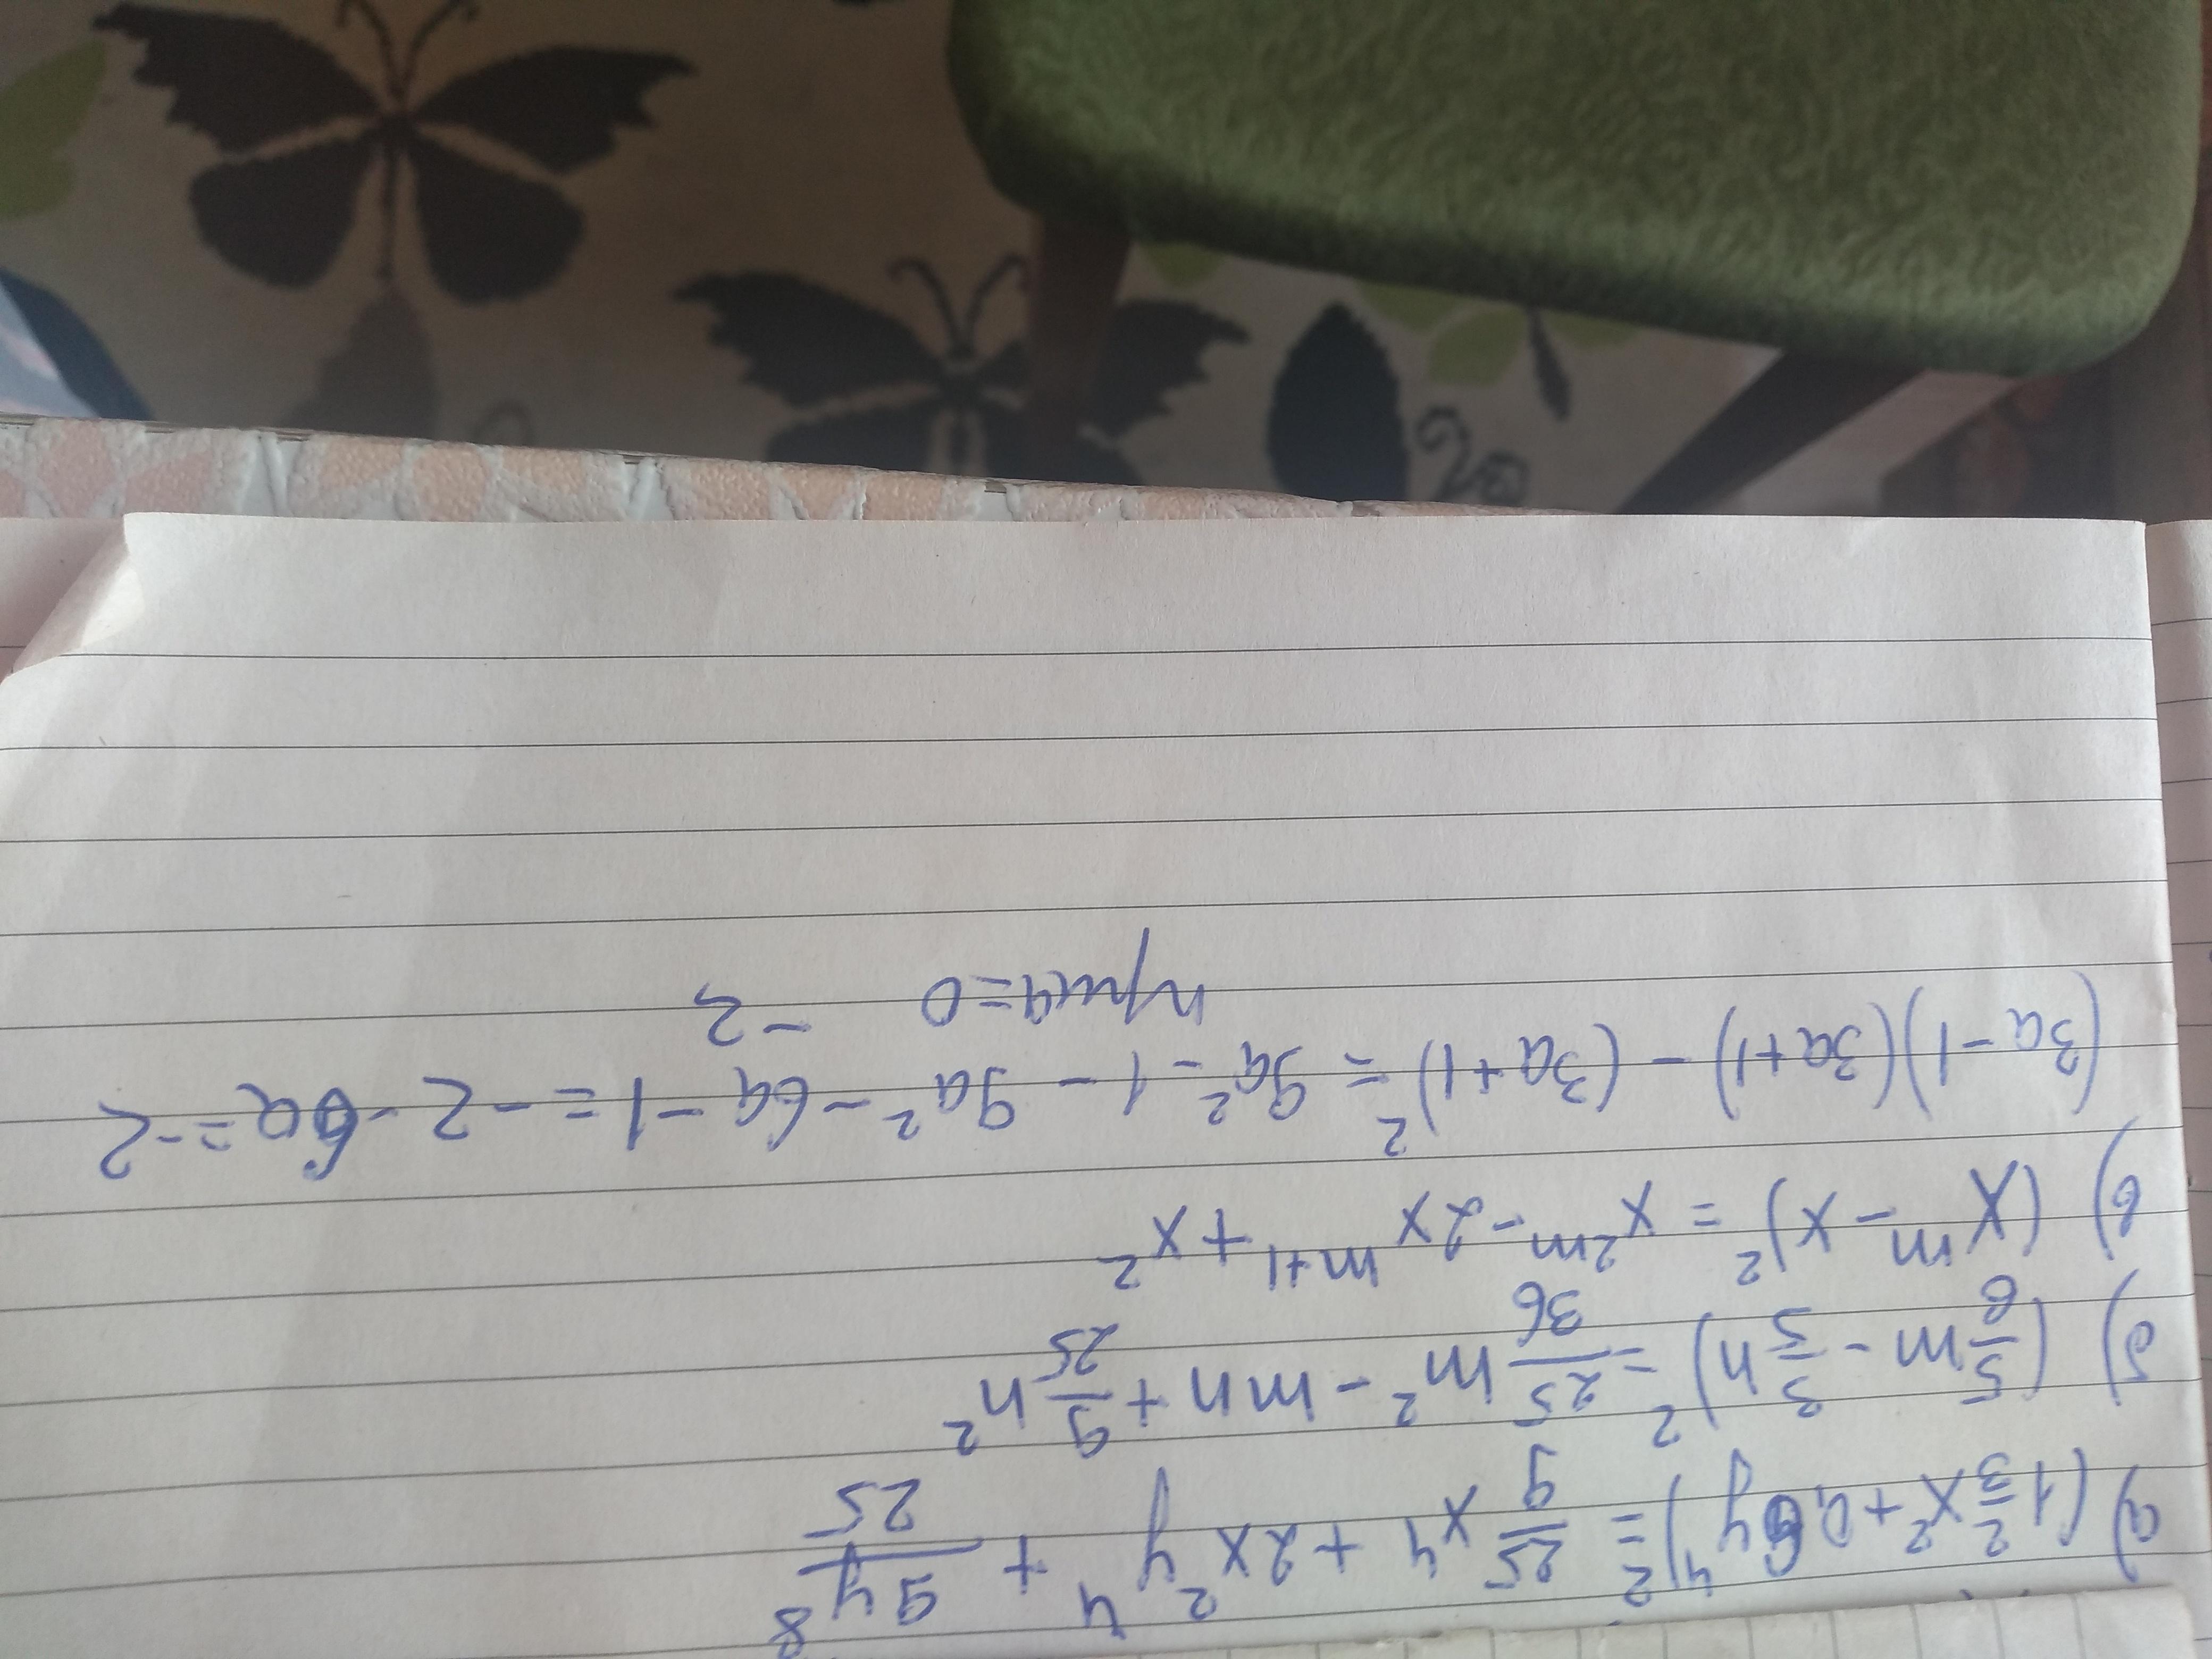 а) (1 2/3 x² + 0,6y⁴)² = 25/9 x⁴ + 2x²y⁴ + 9y⁸/25
б) (5/6 m - 3/5 n)² = 25/36 m² - mn + 9/25 n²
в) (x^m - x)² = x^2m - 2x^m+1 + x²
(3a-1)(3a+1) - (3a+1)² = 9a² - 1 - 9a² - 6a - 1 = -2 - 6a = -2
при a=0 -2